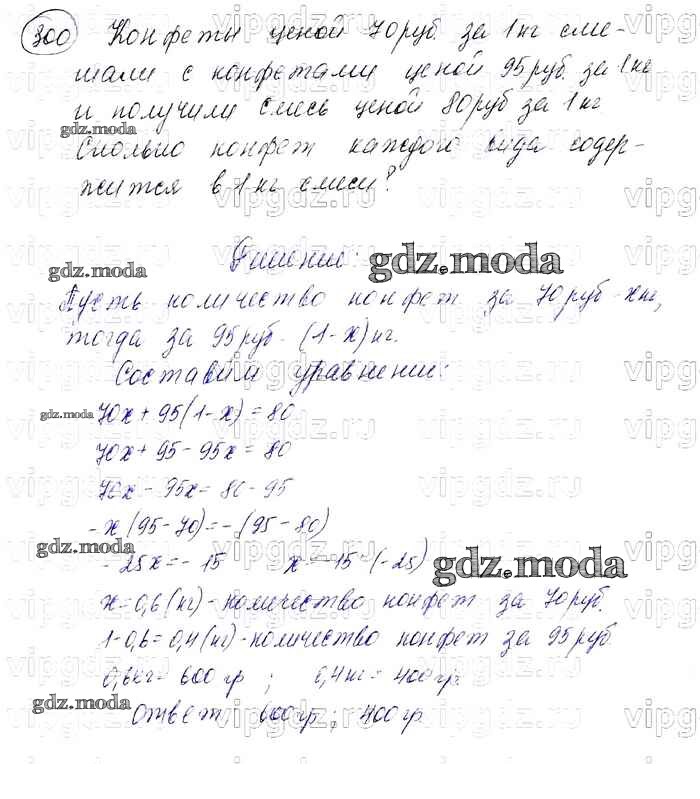 300 Конфеты ценой 70 руб. за 1 кг сме-
шали с конфетами ценой 95 руб. за 1 кг
и получили смесь ценой 80 руб за 1 кг.
gdz.moda
Сколько конфет каждого вида содер-
жится в 1 кг смеси?
Решение:
gdz.moda
gdz.moda
Пусть количество конфет за 70 руб - х кг,
тогда за 95 руб. - (1-х) кг.
Составим уравнение:
gdz.moda
70х + 95(1-х) = 80
70х + 95 - 95х = 80
70х - 95х = 80 - 95
-х (95-70) = -(95-80)
gdz.moda
-25х = -15 х = -15 : (-25)
gdz.moda
х = 0,6 (кг) - количество конфет за 70 руб.
1-0,6 = 0,4 (кг) - количество конфет за 95 руб.
0,6кг = 600 гр ; 0,4 кг = 400 гр.
gdz.moda
Ответ: 600 гр ; 400 гр.
vipgdz.ru